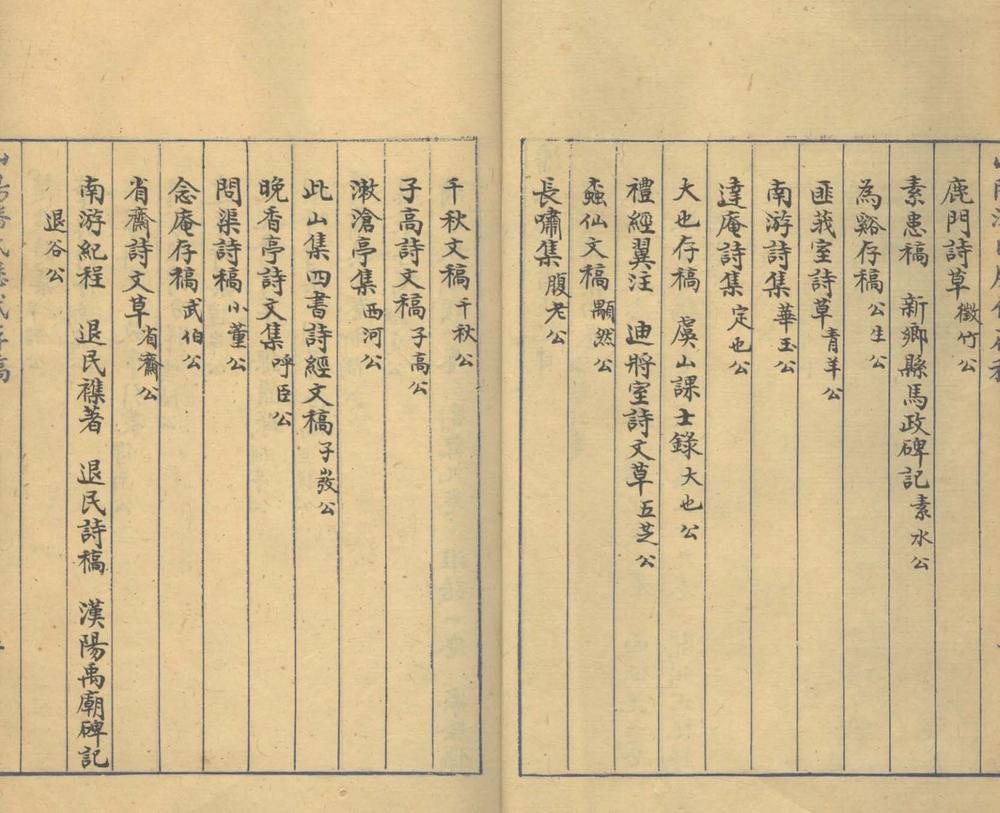 鹿門詩草 徵竹公
素患稿 新鄉縣馬政碑記 素水公
為谿存稿 公生公
匪莪室詩草 青羊公
南游詩集 華玉公
達庵詩集 定也公
大也存稿 虞山課士錄 大也公
禮經翼注 迪將室詩文草 五芝公
蟸仙文稿 顒然公
長嘯集 腹老公
千秋文稿 千秋公
子高詩文稿 子高公
漱滄亭集 西河公
此山集四書詩經文稿 子公
晚香亭詩文集 呼臣公
問渠詩稿 小董公
念庵存稿 武伯公
省齋詩文草 省齋公
南游紀程 退民襍著 退民詩稿 漢陽禹廟碑記
退谷公